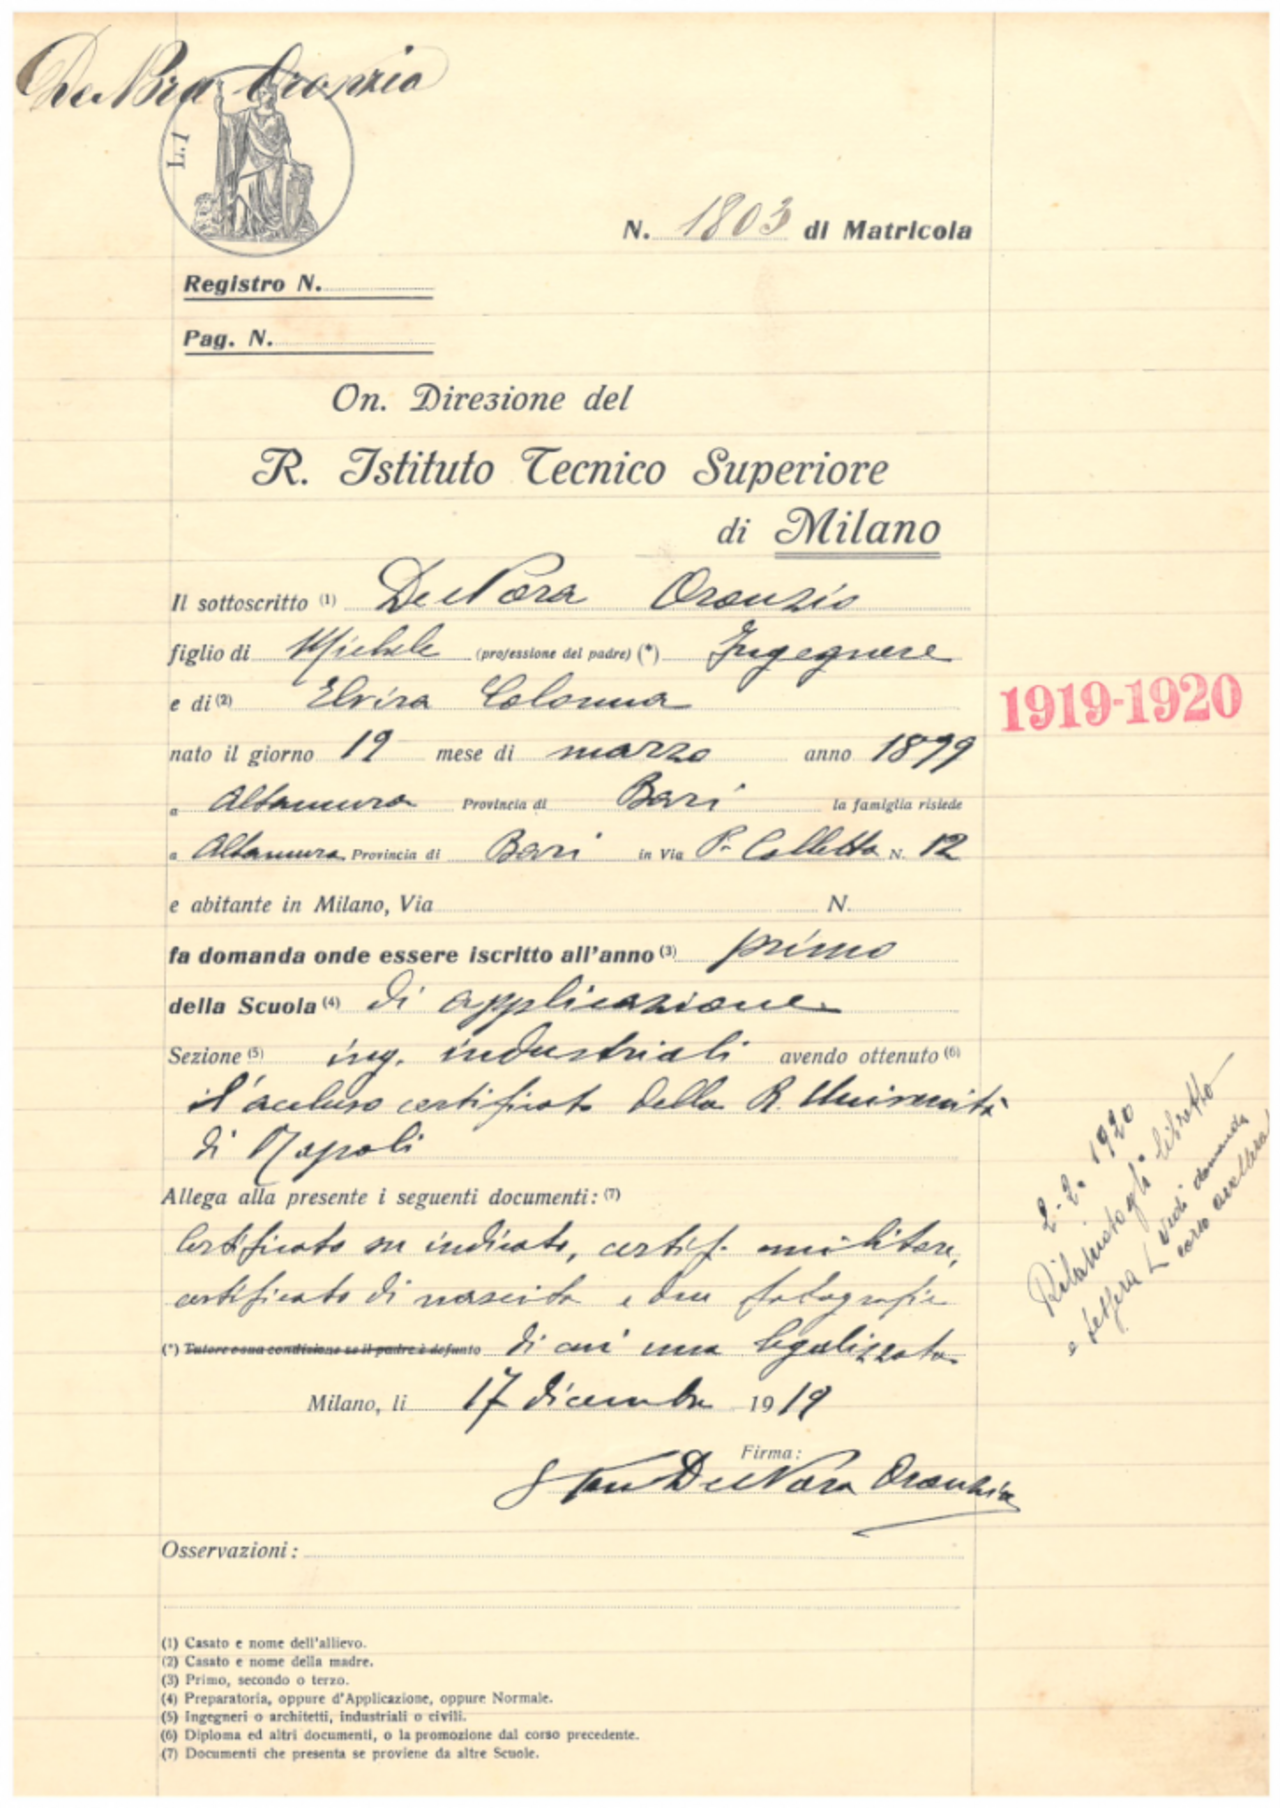 De Nora Oronzio
L. 1
N. 1803 di Matricola
Registro N.
Pag. N.
On. Direzione del
R. Istituto Tecnico Superiore
di Milano
Il sottoscritto (1) De Nora Oronzio
figlio di Michele (professione del padre) (*) Ingegnere
e di (2) Elvira Colonna
1919-1920
nato il giorno 19 mese di marzo anno 1899
a Altamura Provincia di Bari la famiglia risiede
a Altamura Provincia di Bari in Via P. Colletta N. 12
e abitante in Milano, Via N.
fa domanda onde essere iscritto all'anno (3) primo
della Scuola (4) di applicazione
Sezione (5) ing. industriali avendo ottenuto (6)
l'accluso certificato della R. Università
di Napoli
Allega alla presente i seguenti documenti: (7)
Certificato su indicato, certif. militare,
certificato di nascita e due fotografie
(*) Tutore o sua condizione se il padre è defunto di cui una legalizzata
Milano, li 17 dicembre 1919
Firma:
De Nora Oronzio
Osservazioni:
2-2-1920
Rilasciatogli libretto
e tessera vedi domanda
corso
(1) Casato e nome dell'allievo.
(2) Casato e nome della madre.
(3) Primo, secondo o terzo.
(4) Preparatoria, oppure d'Applicazione, oppure Normale.
(5) Ingegneri o architetti, industriali o civili.
(6) Diploma ed altri documenti, o la promozione dal corso precedente.
(7) Documenti che presenta se proviene da altre Scuole.